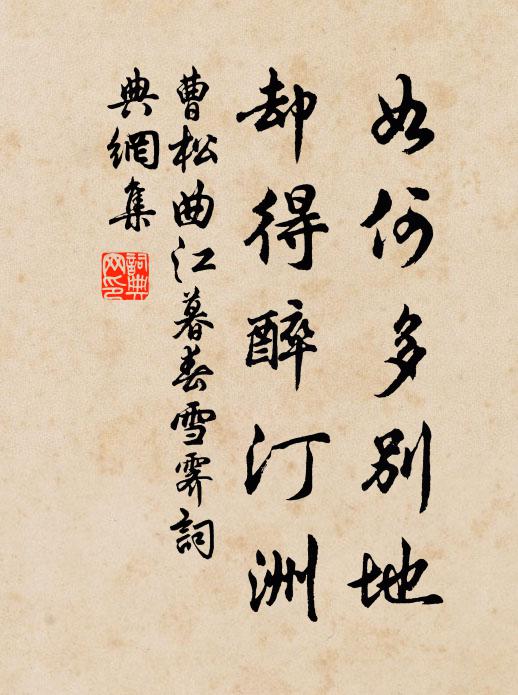 如何多别地
却得醉汀洲
曹松曲江暮春雪霁詞
典網集
詞典网印